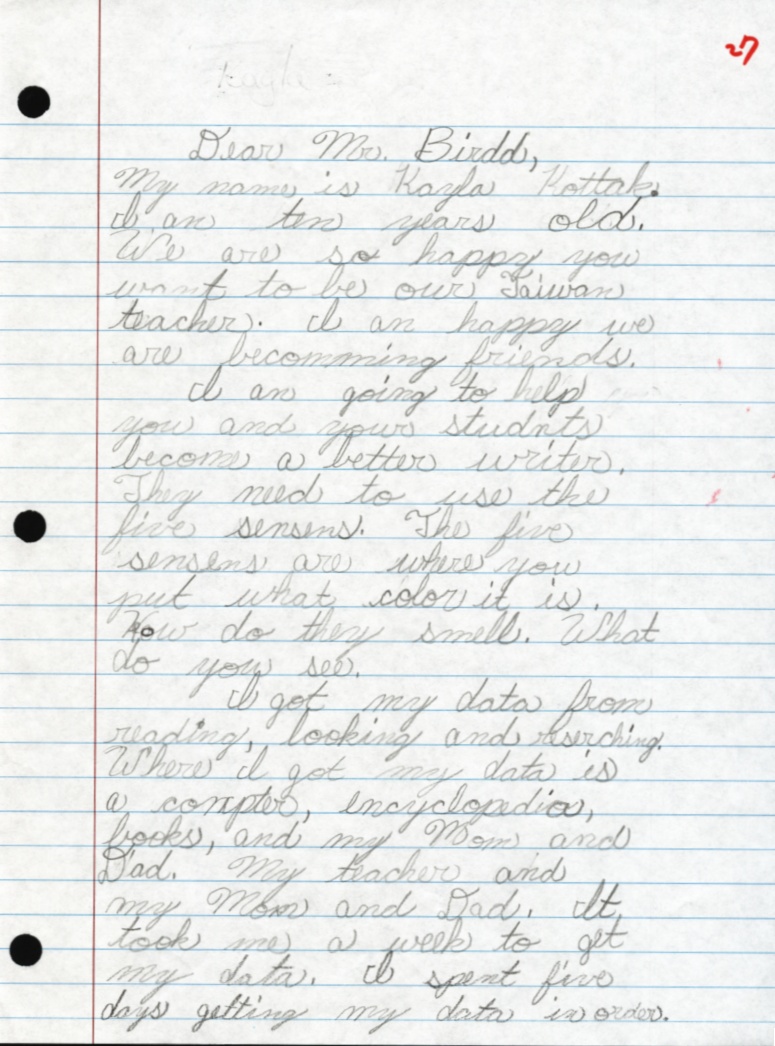 27
Kayla
Dear Mr. Birdd,
My name is Kayla Kottak.
I an ten years old.
We are so happy you
want to be our Taiwan
teacher. I an happy we
are becomming friends.
I an going to help
you and your studnts
become a better writer.
They need to use the
five sensens. The five
sensens are where you
put what color it is.
How do they smell. What
do you see.
I got my data from
reading, looking and reserching.
Where I got my data is
a compter, encyclopedia,
books, and my Mom and
Dad. My teacher and
my Mom and Dad. It
took me a week to get
my data. I spent five
days getting my data in order.